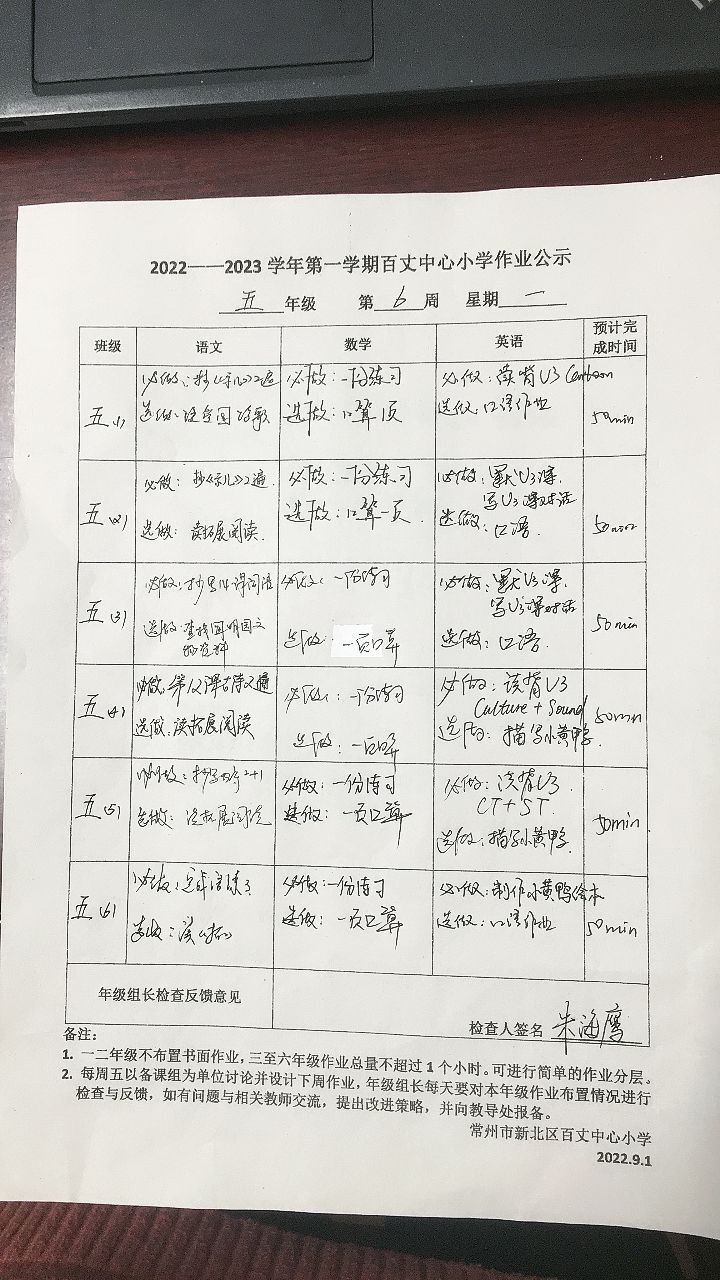 2022——2023 学年第一学期百丈中心小学作业公示
五 年级 第 6 周 星期 一
班级 语文 数学 英语 预计完成时间
五(1)
必做:抄《示儿》2遍
选做:
必做:一份练习
选做:口算1页
必做:读背U3 Cartoon
选做:口语作业
50min
五(2)
必做:抄《示儿》2遍
选做:读拓展阅读.
必做:一份练习
选做:口算一页.
必做:默U3课
写U3课对话
选做:口语.
50min
五(3)
必做:抄 课词语
选做:查找圆明园文物
必做:一份练习
选做:一页口算
必做:默U3课.
写U3课对话
选做:口语.
50min
五(4)
必做:第12课古诗2遍
选做:读拓展阅读
必做:一份练习
选做:一页口算
必做:读背U3
Culture + Sound
选做:描写小黄鸭.
50min
五(5)
必做:抄写 2+1
选做:读拓展阅读
必做:一份练习
选做:一页口算
必做:读背U3.
CT+ST.
选做:描写小黄鸭.
50min
五(6)
必做:
选做:
必做:一份练习
选做:一页口算
必做:制作小黄鸭绘本
选做:口语作业
50min
年级组长检查反馈意见
检查人签名 朱海鹰
备注:
1. 一二年级不布置书面作业,三至六年级作业总量不超过 1 个小时。可进行简单的作业分层。
2. 每周五以备课组为单位讨论并设计下周作业,年级组长每天要对本年级作业布置情况进行
检查与反馈,如有问题与相关教师交流,提出改进策略,并向教导处报备。
常州市新北区百丈中心小学
2022.9.1